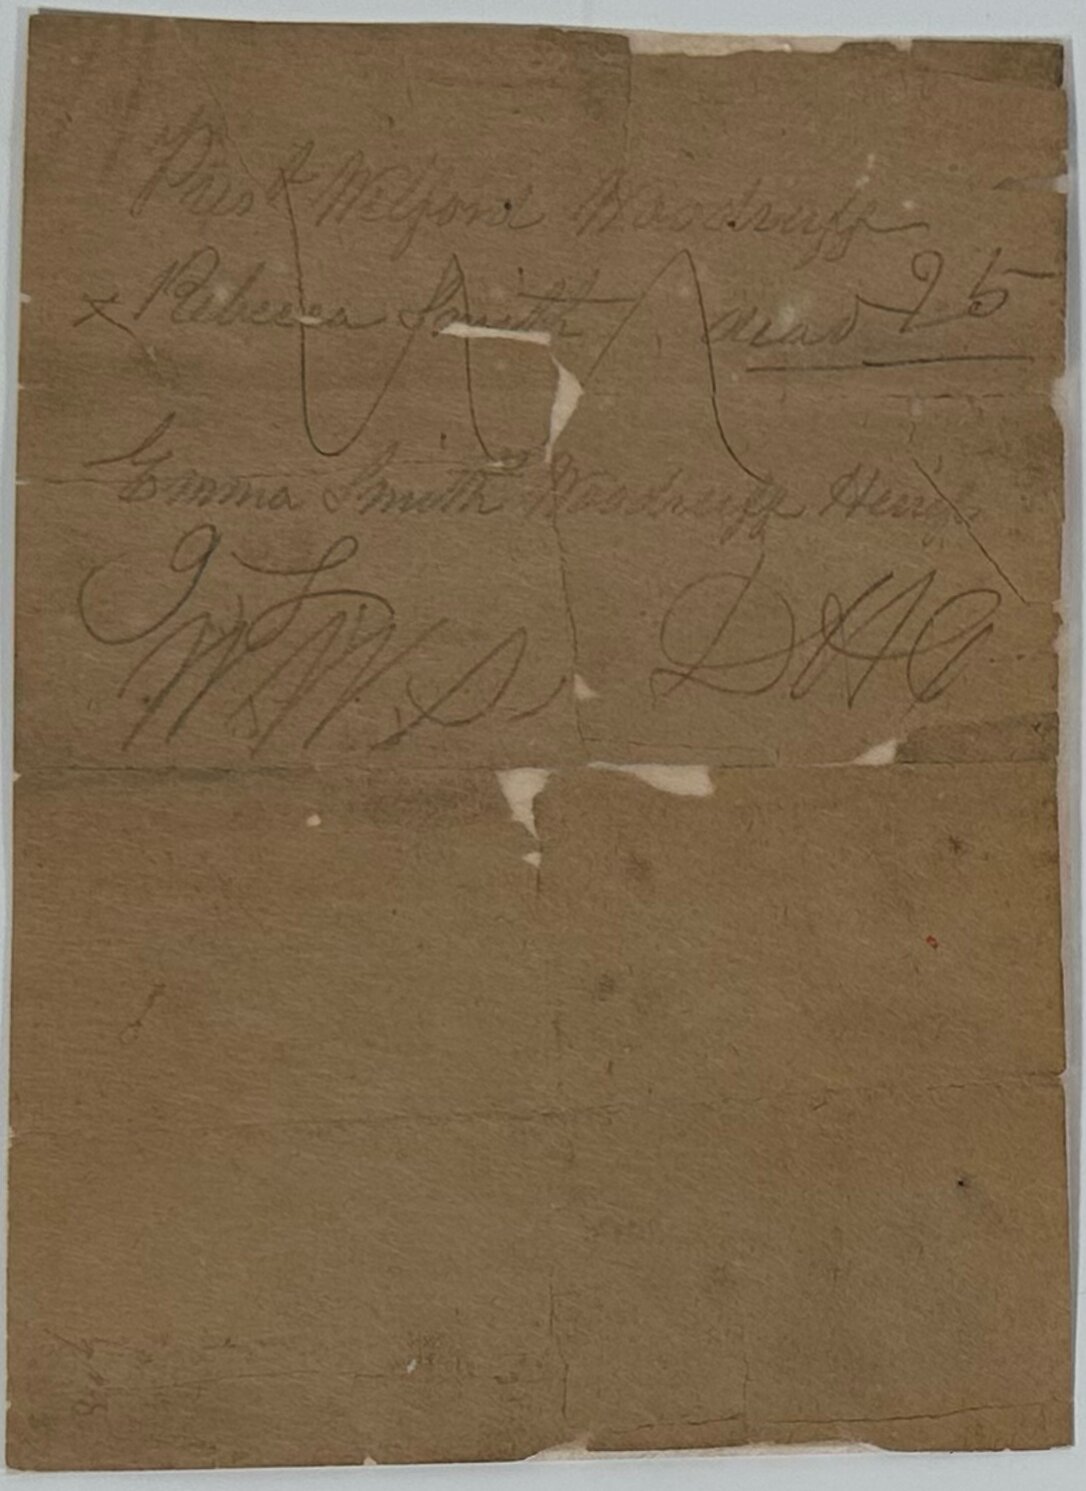 Prest Wilford Woodruff
x Rebecca Smith dead 95
Emma Smith Woodruff
W. W. S. D H